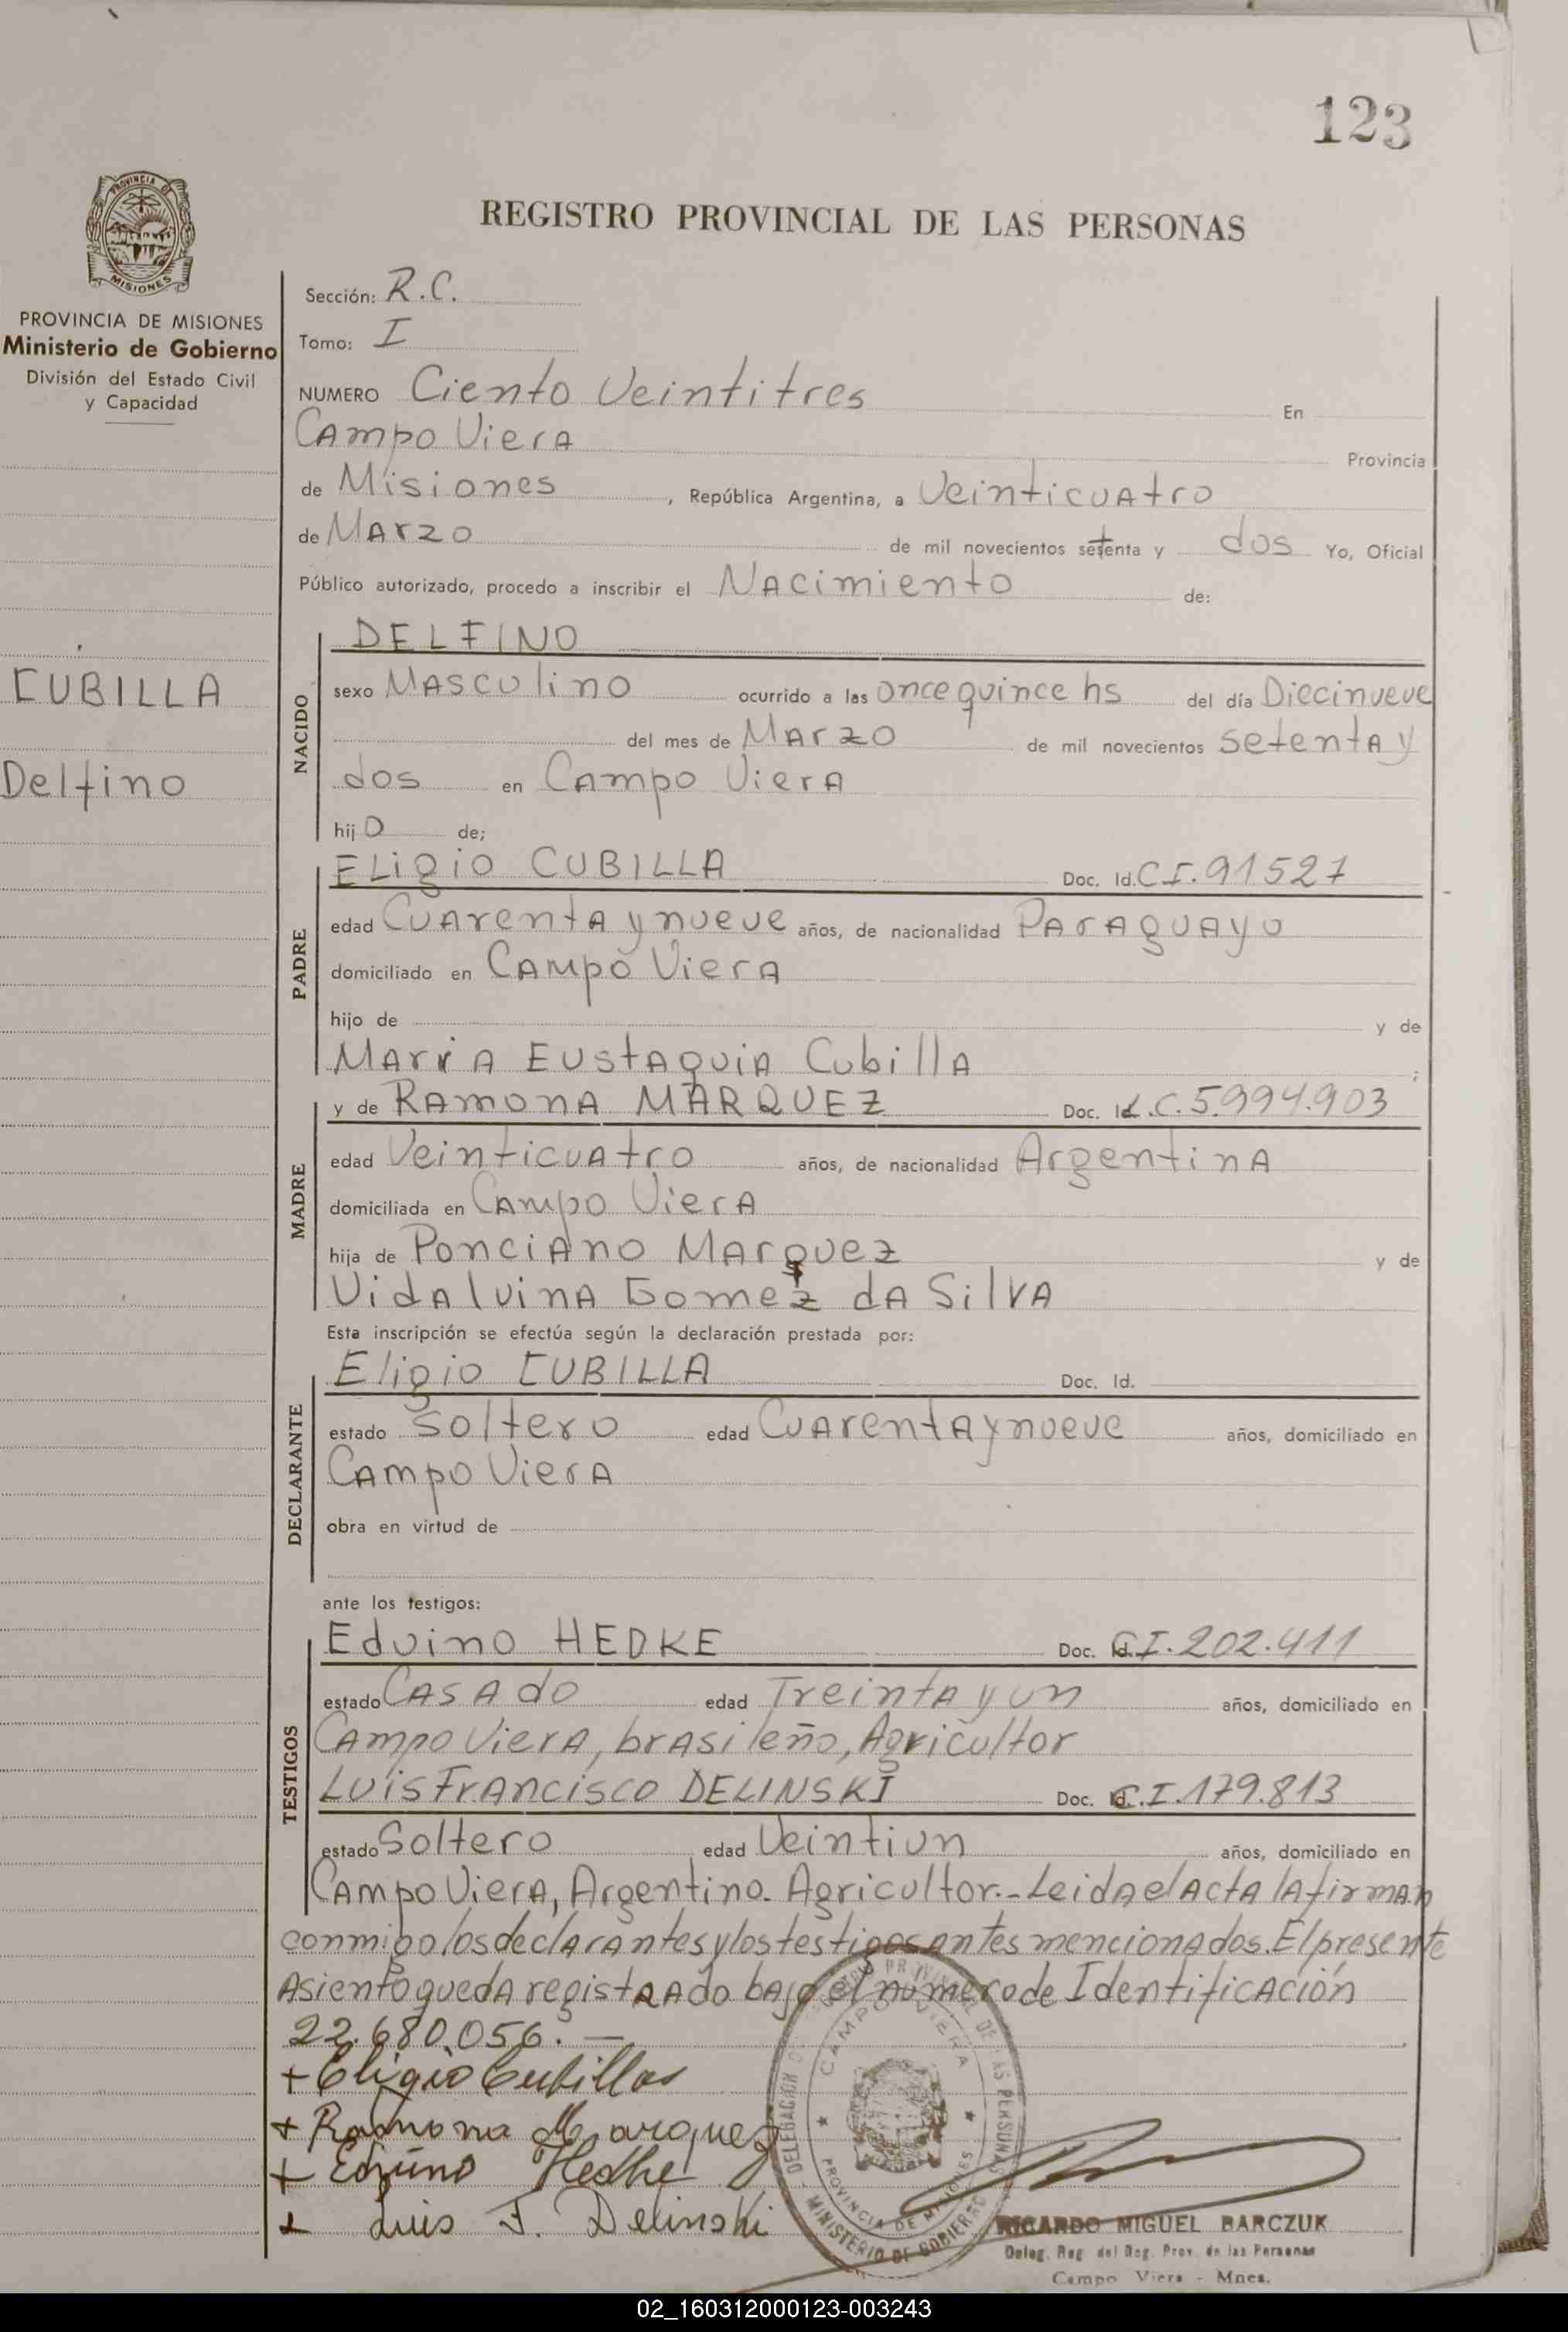 123
PROVINCIA DE
MISIONES
REGISTRO PROVINCIAL DE LAS PERSONAS
PROVINCIA DE MISIONES
Ministerio de Gobierno
División del Estado Civil
y Capacidad
CUBILLA
Delfino
Sección: R.C.
Tomo: I
NUMERO Ciento Veintitres En
Campo Viera Provincia
de Misiones, República Argentina, a Veinticuatro
de Marzo de mil novecientos setenta y dos Yo, Oficial
Público autorizado, procedo a inscribir el Nacimiento de:
NACIDO
DELFINO
sexo Masculino ocurrido a las once quince hs del día Diecinueve
del mes de Marzo de mil novecientos setenta y
dos en Campo Viera
hijo de;
PADRE
Eligio CUBILLA Doc. Id. C.I. 91527
edad Cuarenta y nueve años, de nacionalidad Paraguayo
domiciliado en Campo Viera
hijo de y de
Maria Eustaquia Cubilla ;
MADRE
y de Ramona MARQUEZ Doc. Id. L.C. 5.994.903
edad Veinticuatro años, de nacionalidad Argentina
domiciliada en Campo Viera
hija de Ponciano Marquez y de
Vidalvina Gomez da Silva
Esta inscripción se efectúa según la declaración prestada por:
DECLARANTE
Eligio CUBILLA Doc. Id.
estado Soltero edad Cuarenta y nueve años, domiciliado en
Campo Viera
obra en virtud de
ante los testigos:
TESTIGOS
Edvino HEDKE Doc. Id. C.I. 202.411
estado Casado edad Treinta y un años, domiciliado en
Campo Viera, brasileño, Agricultor
Luis Francisco DELINSKI Doc. Id. C.I. 179.813
estado Soltero edad Veintiun años, domiciliado en
Campo Viera, Argentino. Agricultor.- Leida el Acta la firman
conmigo los declarantes y los testigos antes mencionados. El presente
Asiento queda registrado bajo el numero de Identificación
22.680.056. —
+ Eligio Cubillas
+ Ramona Marquez
+ Edvino Hedke
+ Luis F. Delinski
CAMPO VIERA
PROVINCIA DE MISIONES
MINISTERIO DE GOBIERNO
RICARDO MIGUEL BARCZUK
Deleg. Reg. del Reg. Prov. de las Personas
Campo Viera - Mnes.
02_160312000123-003243